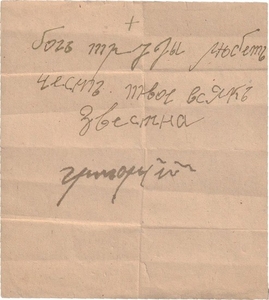 +
богъ труды любетъ
честь твое всякъ
звестна
григорий